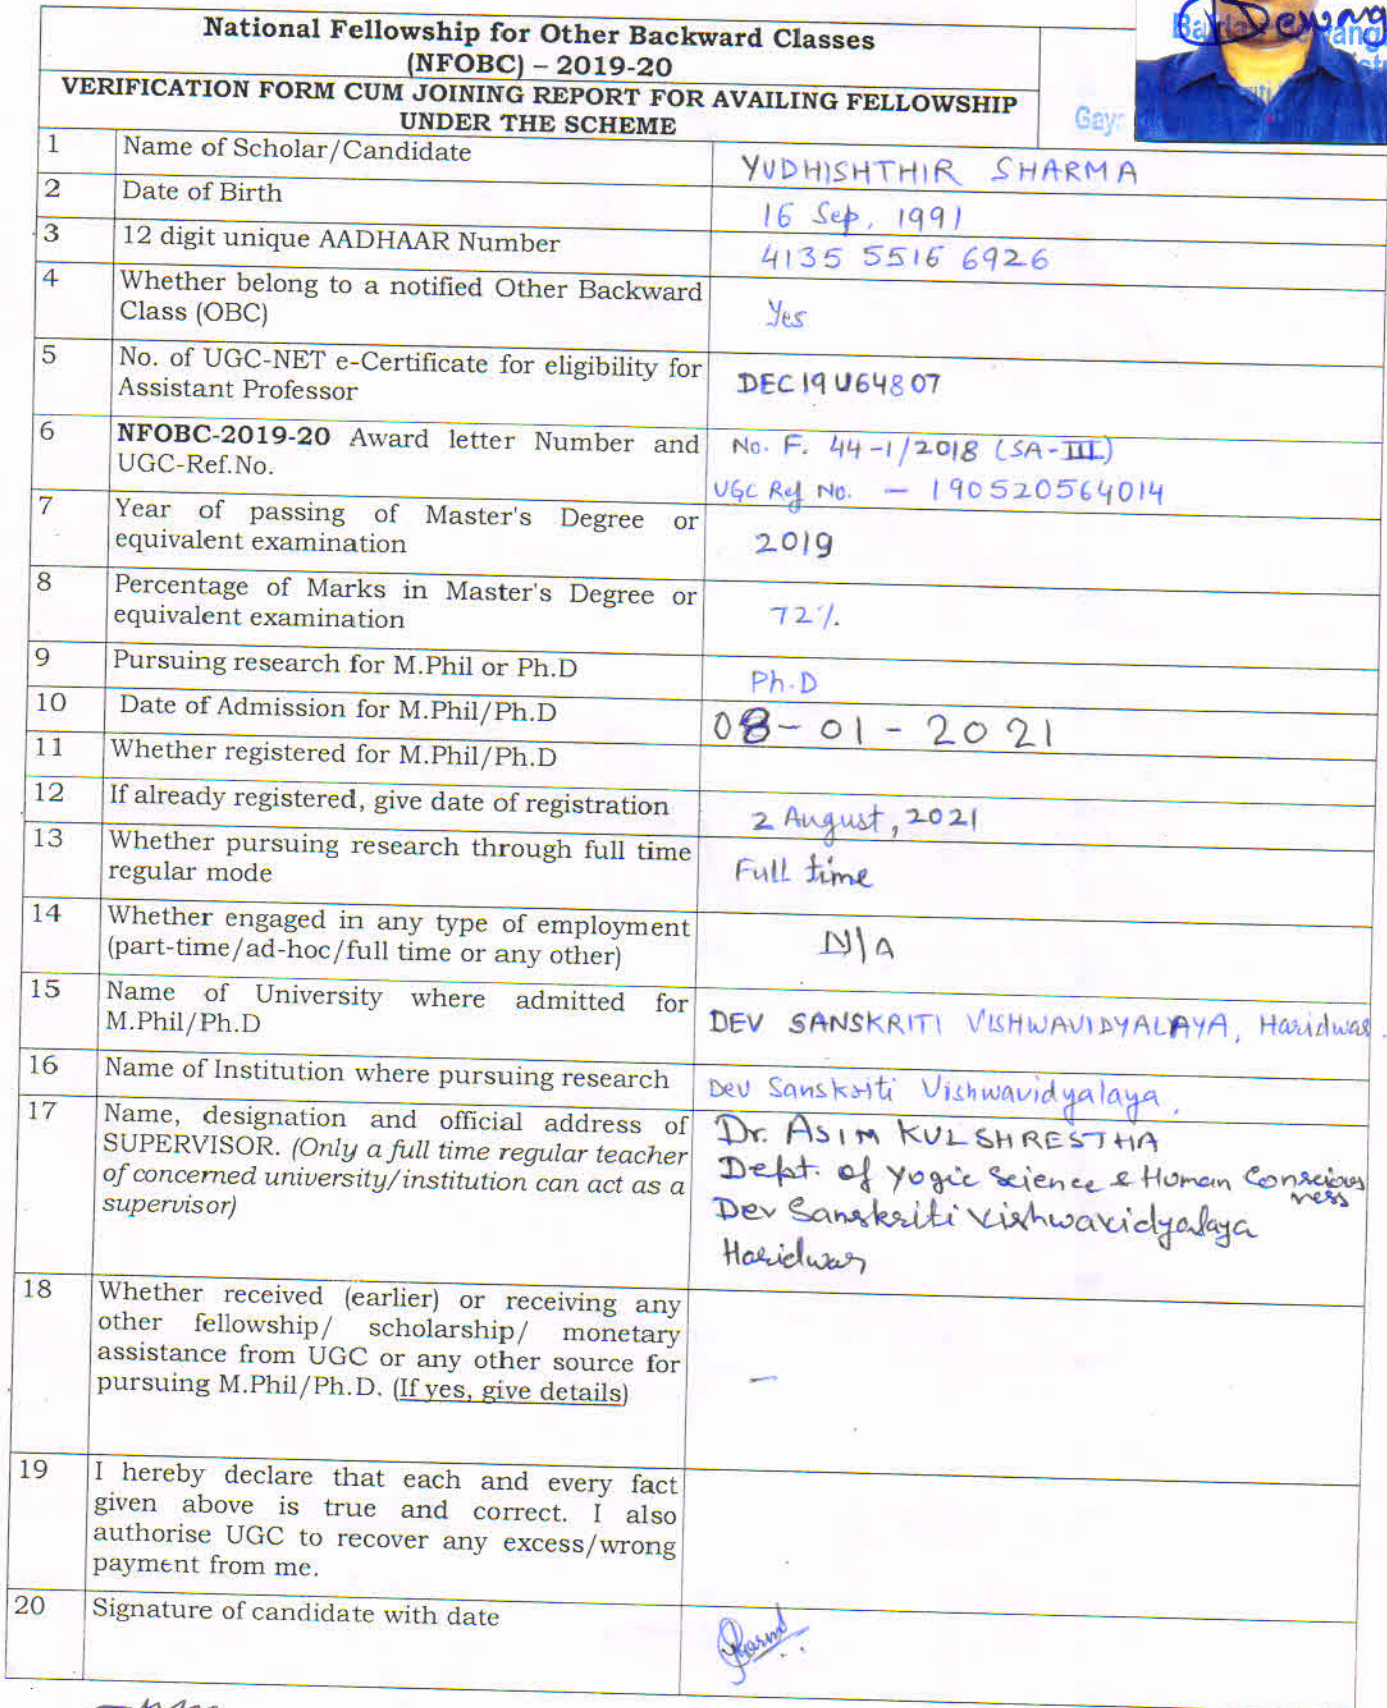 National Fellowship for Other Backward Classes
(NFOBC) – 2019-20
VERIFICATION FORM CUM JOINING REPORT FOR AVAILING FELLOWSHIP
UNDER THE SCHEME
Dewang
Gay
1 Name of Scholar/Candidate YUDHISHTHIR SHARMA
2 Date of Birth 16 Sep, 1991
3 12 digit unique AADHAAR Number 4135 5516 6926
4 Whether belong to a notified Other Backward
Class (OBC) Yes
5 No. of UGC-NET e-Certificate for eligibility for
Assistant Professor DEC19U64807
6 NFOBC-2019-20 Award letter Number and
UGC-Ref.No. No. F. 44-1/2018 (SA-III)
UGC Ref No. — 190520564014
7 Year of passing of Master's Degree or
equivalent examination 2019
8 Percentage of Marks in Master's Degree or
equivalent examination 72%.
9 Pursuing research for M.Phil or Ph.D Ph.D
10 Date of Admission for M.Phil/Ph.D 08-01-2021
11 Whether registered for M.Phil/Ph.D
12 If already registered, give date of registration 2 August, 2021
13 Whether pursuing research through full time
regular mode Full time
14 Whether engaged in any type of employment
(part-time/ad-hoc/full time or any other) N/A
15 Name of University where admitted for
M.Phil/Ph.D DEV SANSKRITI VISHWAVIDYALAYA, Haridwar.
16 Name of Institution where pursuing research Dev Sanskriti Vishwavidyalaya,
17 Name, designation and official address of
SUPERVISOR. (Only a full time regular teacher
of concerned university/institution can act as a
supervisor)
Dr. ASIM KULSHRESTHA
Dept. of Yogic Science & Human Conscious
ness
Dev Sanskriti Vishwavidyalaya
Haridwar
18 Whether received (earlier) or receiving any
other fellowship/ scholarship/ monetary
assistance from UGC or any other source for
pursuing M.Phil/Ph.D. (If yes, give details) —
19 I hereby declare that each and every fact
given above is true and correct. I also
authorise UGC to recover any excess/wrong
payment from me.
20 Signature of candidate with date